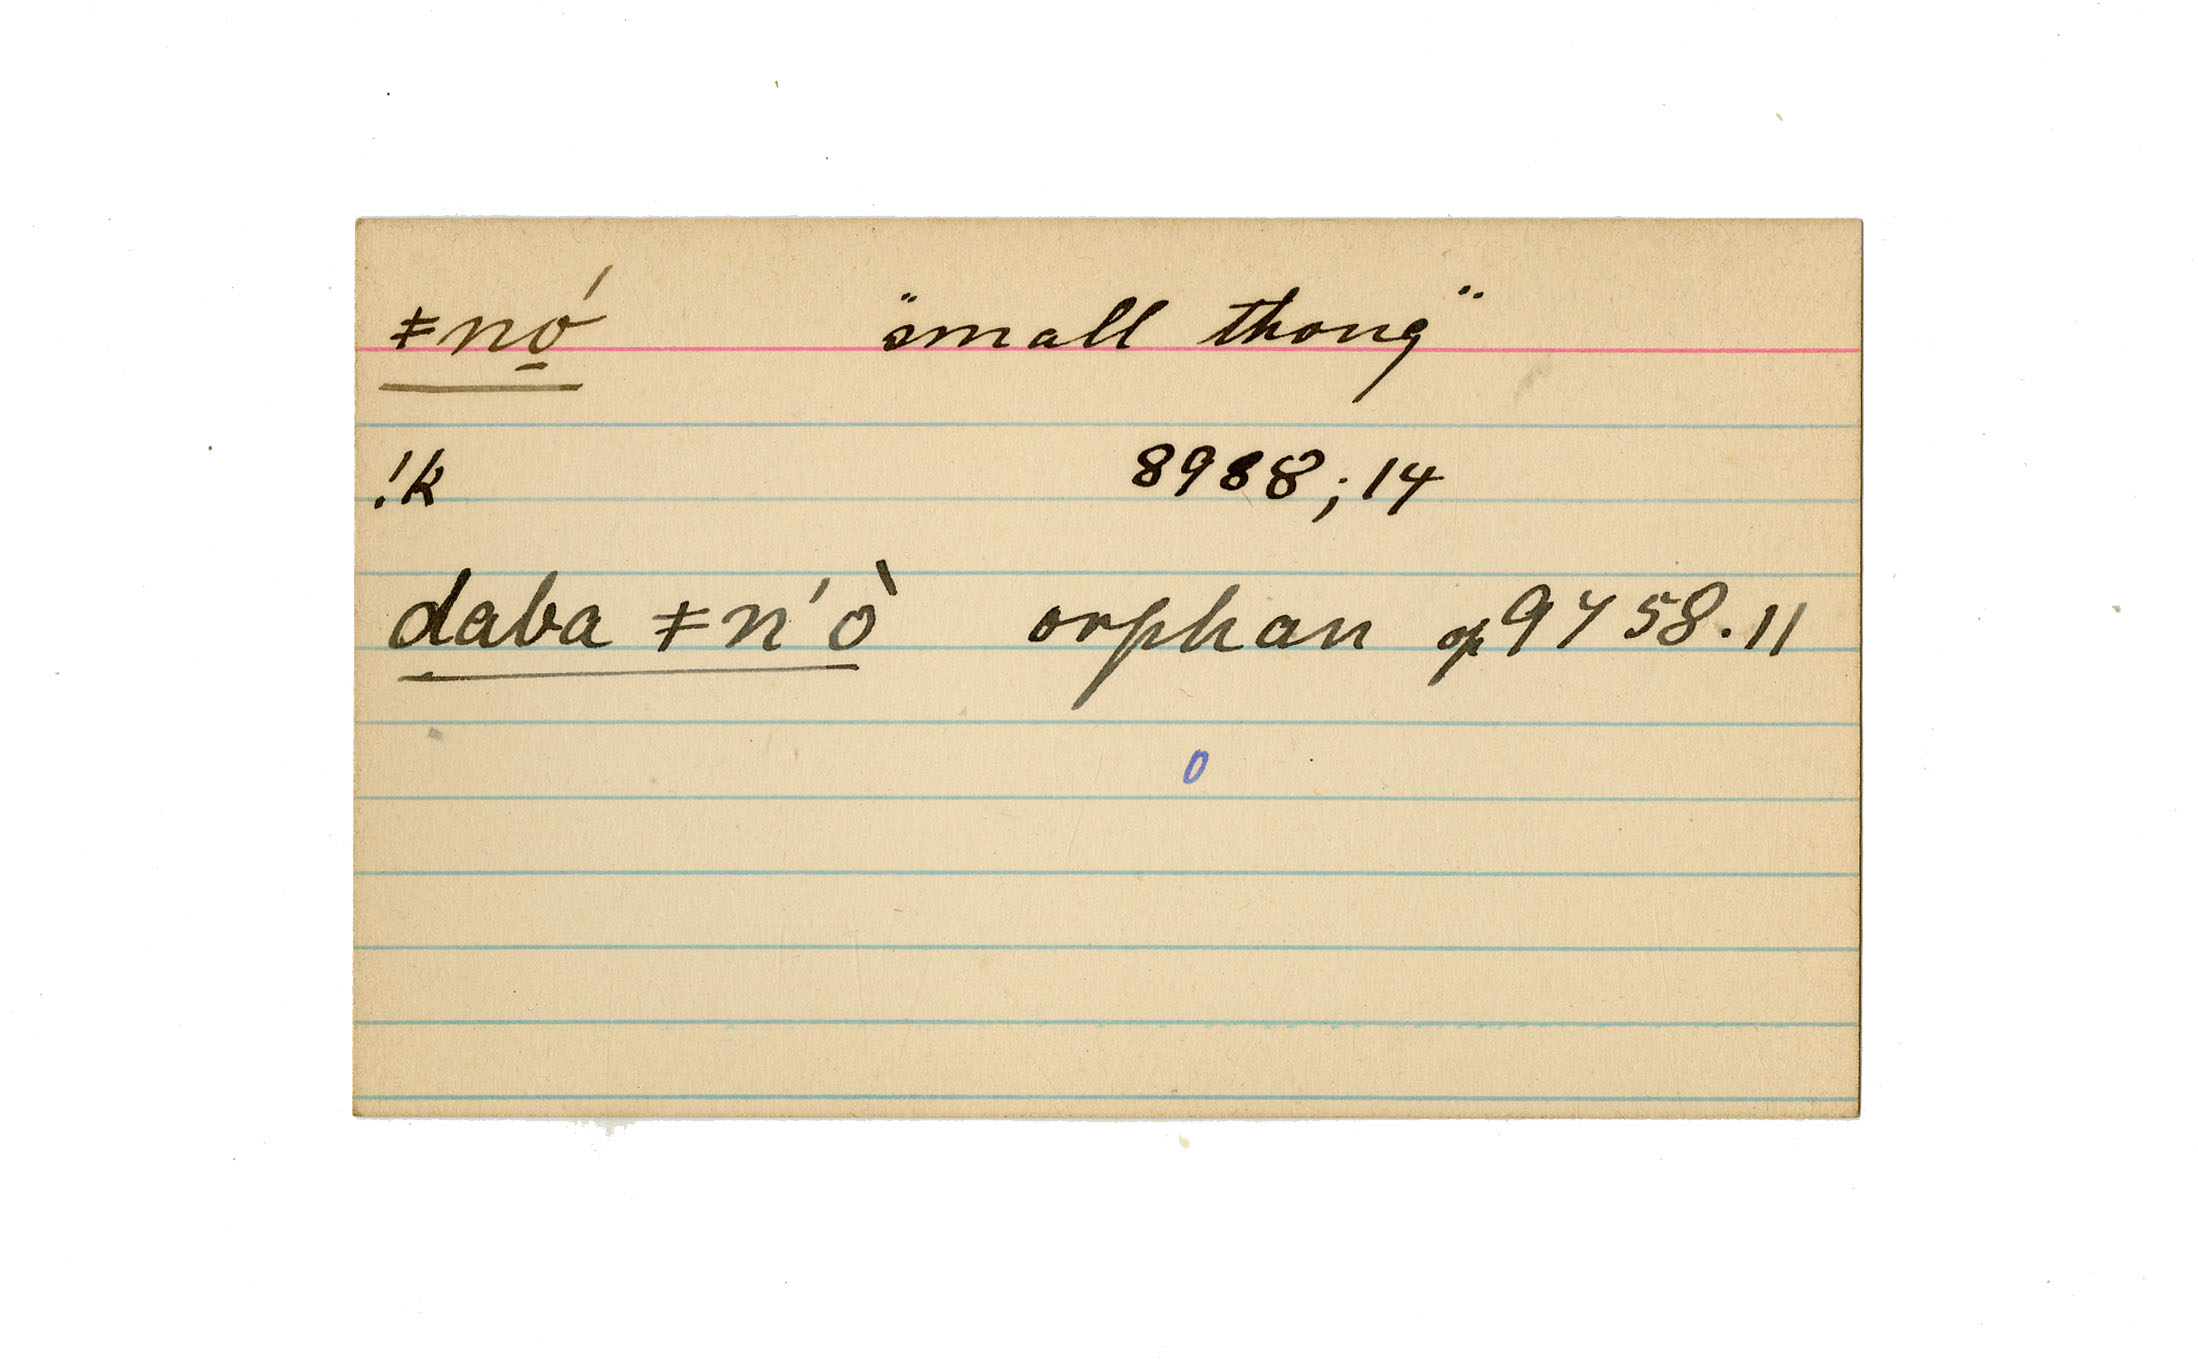 ǂnó̱ "small thong"
!k 8988; 14
daba ǂn'ò orphan op 9758.11
0